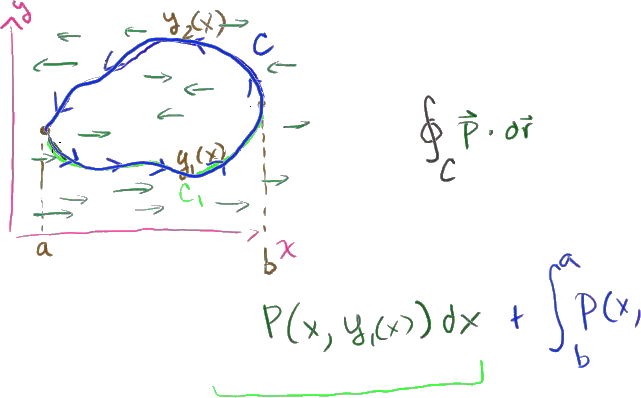 y
y₂(x)
C
y₁(x)
C₁
a
b
x
∮_C P⃗ · dr⃗
P(x, y₁(x)) dx + ∫_b^a P(x,